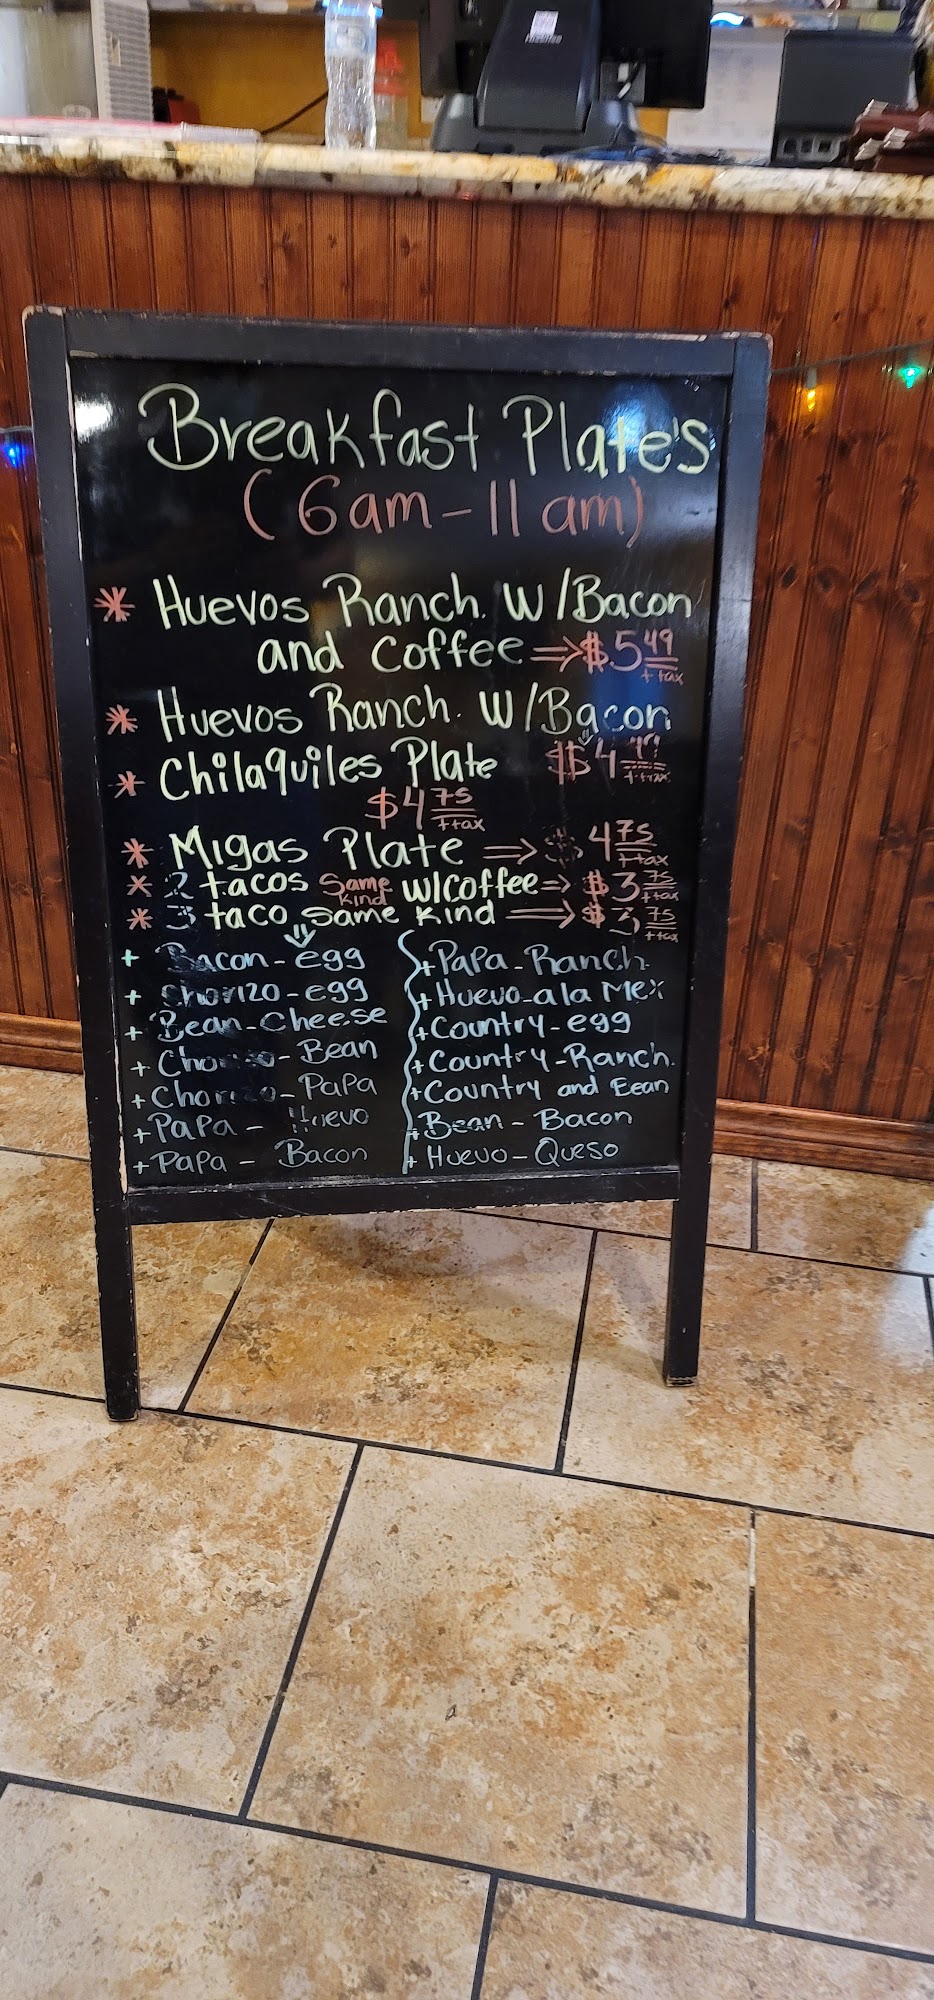 Breakfast Plate's
(6am-11am)
* Huevos Ranch. W/Bacon
and Coffee => $5 49 + tax
* Huevos Ranch. W/Bacon
* Chilaquiles Plate $4 49 + tax
$4 75 + tax
* Migas Plate => $ 4 75 + tax
* 2 tacos same kind w/coffee => $3 75 + tax
* 3 taco same kind => $3 75 + tax
+ Bacon-egg
+ chorizo-egg
+ Bean-Cheese
+ Chorizo-Bean
+ Chorizo-Papa
+ Papa - Huevo
+ Papa - Bacon
+ Papa-Ranch.
+ Huevo-a la Mex
+ Country-egg
+ Country-Ranch.
+ Country and Bean
+ Bean - Bacon
+ Huevo - Queso